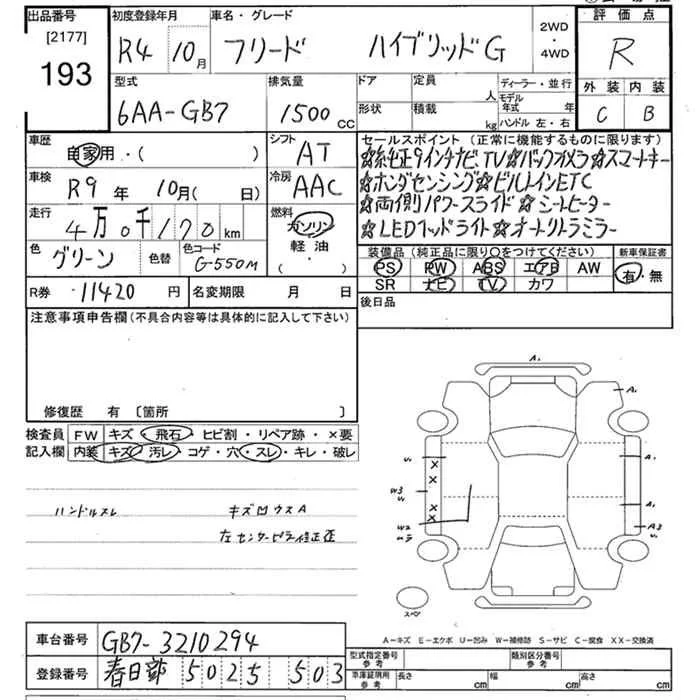 出品番号 初度登録年月 車名・グレード 2WD・4WD 評価点
[2177]
193 R4 10月 フリード ハイブリッドG R
型式 排気量 ドア 定員 人 ディーラー・並行 外装 内装
6AA-GB7 1500cc 形状 積載 kg モデル年式 年 ハンドル 左・右 C B
車歴 自家用・( ) シフト AT セールスポイント (正常に機能するものに限ります)
☆純正9インチナビ、TV☆バックカメラ☆スマートキー
車検 R9年 10月( 日) 冷房 AAC ☆ホンダセンシング☆ビルトインETC
☆両側パワースライド☆シートヒーター
走行 4万0千170km 燃料 ガソリン 軽油・( ) ☆LEDヘッドライト☆オートリトラミラー
色 グリーン 色替 色コード G-550M 装備品 (純正品に限り○をつけてください) 新車保証書
PS PW ABS エアB AW 有・無
SR ナビ TV カワ
R券 11420円 名変期限 月 日 後日品
注意事項申告欄(不具合内容等は具体的に記入して下さい)
修復歴 有 〔箇所 〕
検査員 FW キズ・飛石・ヒビ割・リペア跡・×要
記入欄 内装 キズ・汚レ・コゲ・穴・スレ・キレ・破レ
ハンドルスレ キズ凹ウスA
左センターピラー修正歪
A₁
A₁
A₁
A₁
A3
U₁
W3
U₁
W2
スペア
A-キズ E-エクボ U-凹み W-補修跡 S-サビ C-腐食 XX-交換済
車台番号 GB7-3210294 型式指定番号 参考 類別区分番号 参考
登録番号 春日部 502 5 503 車庫証明用 参考 長さ cm 幅 cm 高さ cm